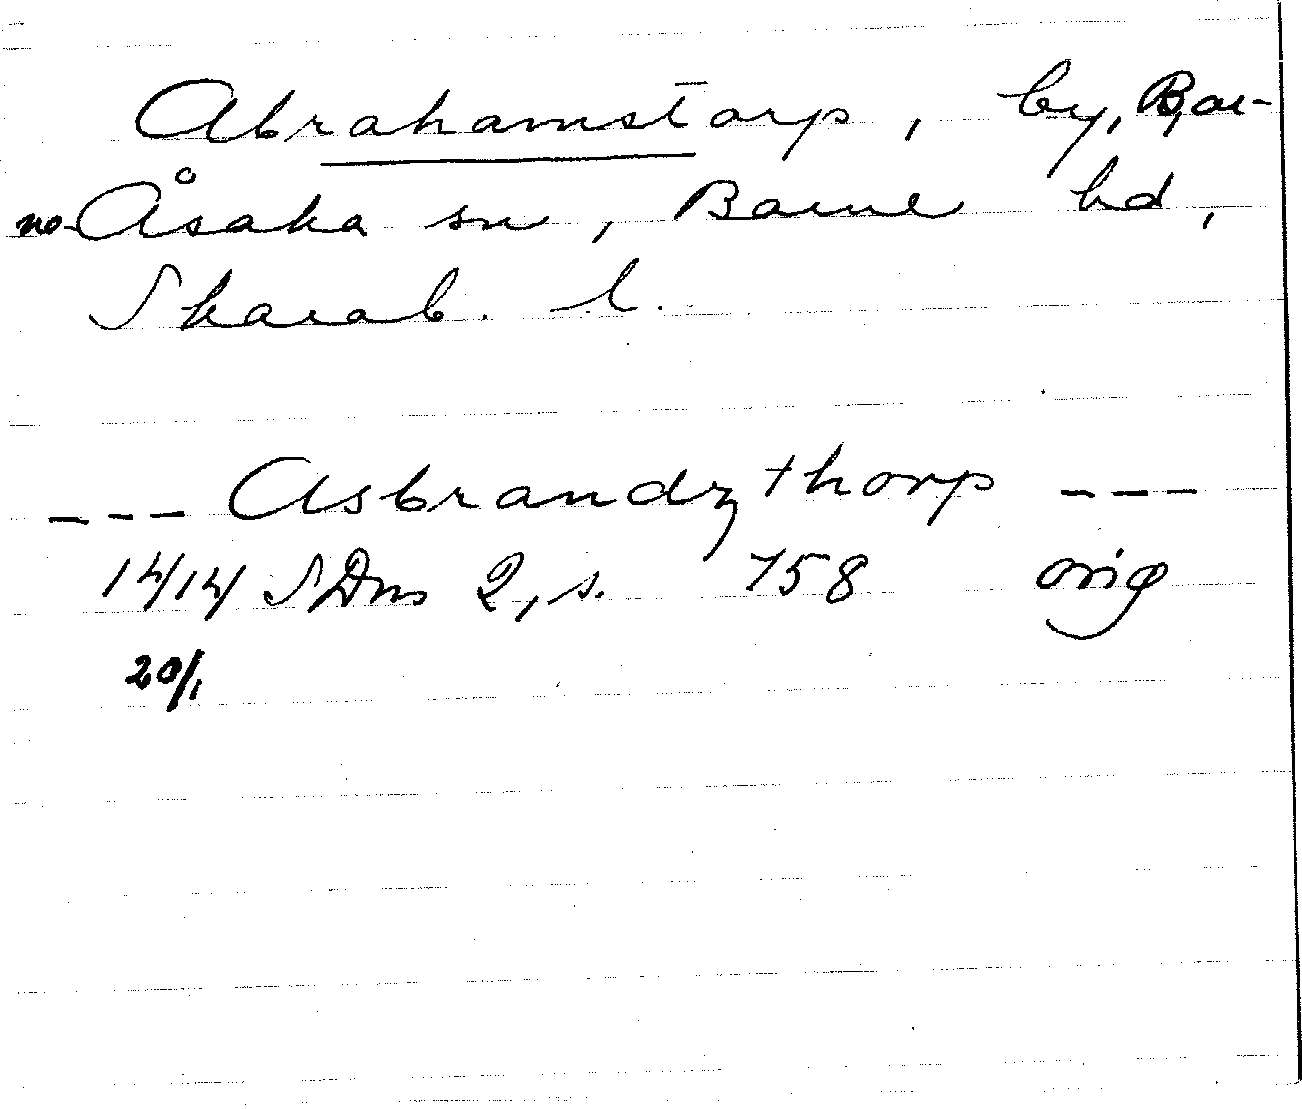 Abrahamstorp, by, Bar-
ne-Åsaka sn, Barne hd,
Skarab. l.
--- Asbrandzthorp ---
14/14 SDns 2, s. 758 orig
20/1